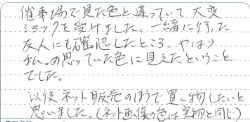 催事場で見た色と違っていて大変
ショックを受けました。一緒に行った
友人にも確認したところ、やはり
私の思っていた色に見えたということ
でした。
以後ネット販売のほうで買い物したいと
思いました。(ネット画像の色は実物と同じ)